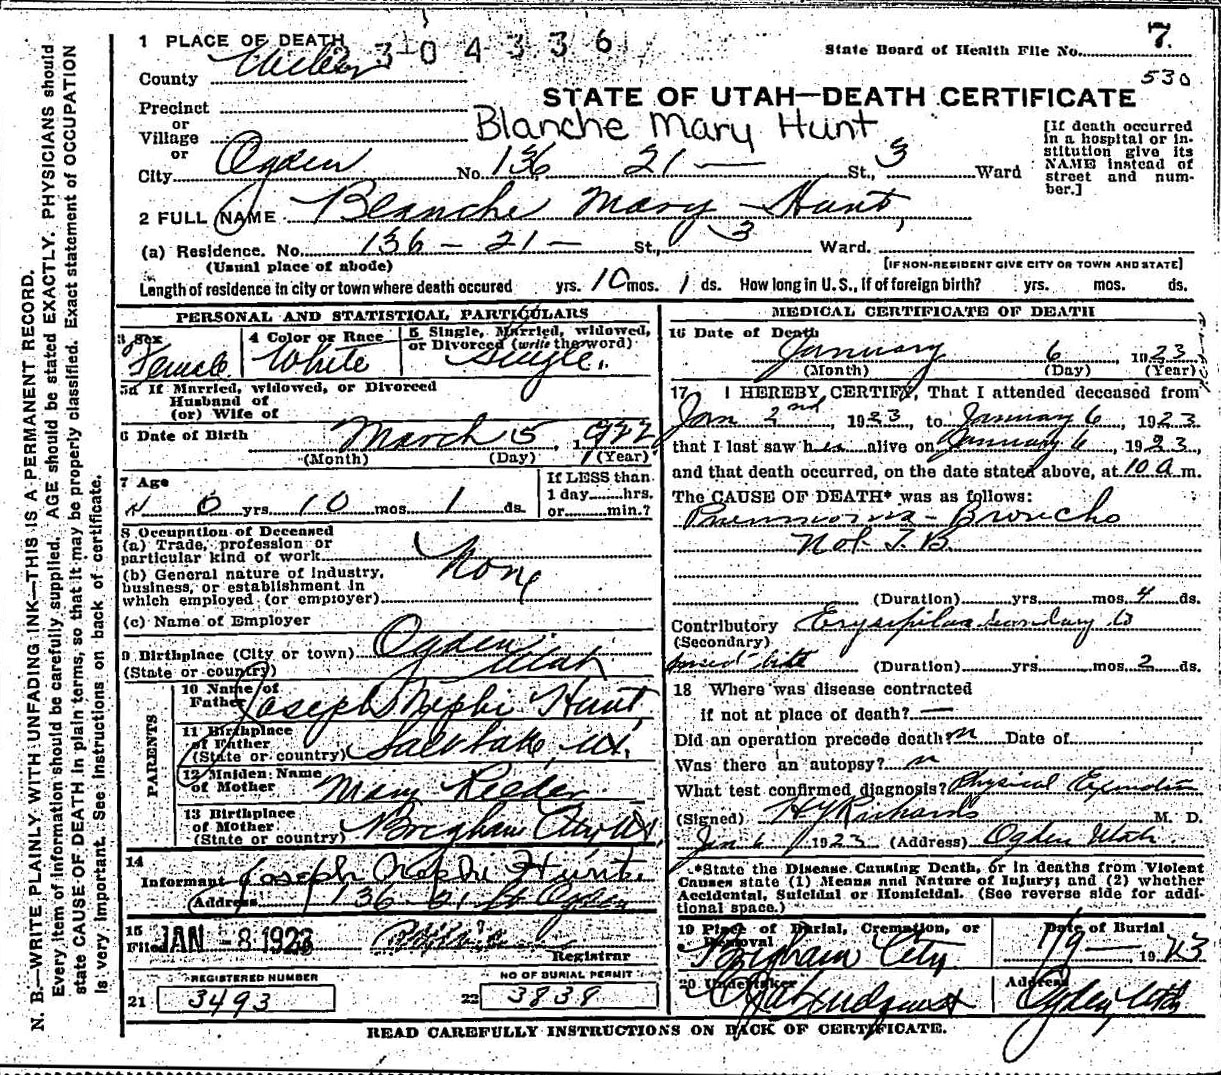 N. B.—WRITE PLAINLY WITH UNFADING INK—THIS IS A PERMANENT RECORD.
Every item of information should be carefully supplied. AGE should be stated EXACTLY. PHYSICIANS should
state CAUSE OF DEATH in plain terms, so that it may be properly classified. Exact statement of OCCUPATION
is very important. See instructions on back of certificate.
1 PLACE OF DEATH 2 3 - 0 4 3 3 6
State Board of Health File No. 7
County Weber
530
STATE OF UTAH—DEATH CERTIFICATE
Precinct
or
Village
or
Blanche Mary Hunt
City Ogden No. 136 21 — St., 3 Ward
[If death occurred
in a hospital or in-
stitution give its
NAME instead of
street and num-
ber.]
2 FULL NAME Blanche Mary Hunt,
(a) Residence. No. 136 - 21 - St., 3 Ward.
(Usual place of abode) [IF NON-RESIDENT GIVE CITY OR TOWN AND STATE]
Length of residence in city or town where death occured yrs. 10 mos. 1 ds. How long in U.S., if of foreign birth? yrs. mos. ds.
PERSONAL AND STATISTICAL PARTICULARS
3 Sex
Female
4 Color or Race
White
5 Single, Married, widowed,
or Divorced (write the word)
Single.
5a If Married, widowed, or Divorced
Husband of
(or) Wife of
6 Date of Birth March 5, 1922
(Month) (Day) (Year)
7 Age
0 yrs. 10 mos. 1 ds.
If LESS than
1 day hrs.
or min.?
8 Occupation of Deceased
(a) Trade, profession or
particular kind of work
None
(b) General nature of industry,
business, or establishment in
which employed (or employer)
(c) Name of Employer
9 Birthplace (City or town) Ogden
(State or country) Utah
PARENTS
10 Name of
Father Joseph Nephi Hunt
11 Birthplace
of Father
(State or country) Salt Lake, Ut.
12 Maiden Name
of Mother Mary Reeder
13 Birthplace
of Mother
(State or country) Brigham City Ut
14
Informant Joseph Nephi Hunt
(Address 136 - 21 St Ogden
15
Filed JAN -8 1923
Registrar
REGISTERED NUMBER
21 3493
NO OF BURIAL PERMIT
22 3839
MEDICAL CERTIFICATE OF DEATH
16 Date of Death
January 6, 1923
(Month) (Day) (Year)
17 I HEREBY CERTIFY, That I attended deceased from
Jan 2nd, 1923, to January 6, 1923
that I last saw her alive on January 6, 1923,
and that death occurred, on the date stated above, at 10 a m.
The CAUSE OF DEATH* was as follows:
Pneumonia - Broncho
Not T. B.
(Duration) yrs. mos. 4 ds.
Contributory Erysipelas secondary to
(Secondary)
(Duration) yrs. mos. 2 ds.
18 Where was disease contracted
if not at place of death? —
Did an operation precede death? n Date of
Was there an autopsy? n
What test confirmed diagnosis? Physical
(Signed) H Y Richards M. D.
Jan 6, 1923 (Address) Ogden Utah.
*State the Disease Causing Death, or in deaths from Violent
Causes state (1) Means and Nature of Injury; and (2) whether
Accidental, Suicidal or Homicidal. (See reverse side for addi-
tional space.)
19 Place of Burial, Cremation, or
Removal
Brigham City
Date of Burial
1/9 — 1923
20 Undertaker
Lindquist
Address
Ogden, Utah
READ CAREFULLY INSTRUCTIONS ON BACK OF CERTIFICATE.